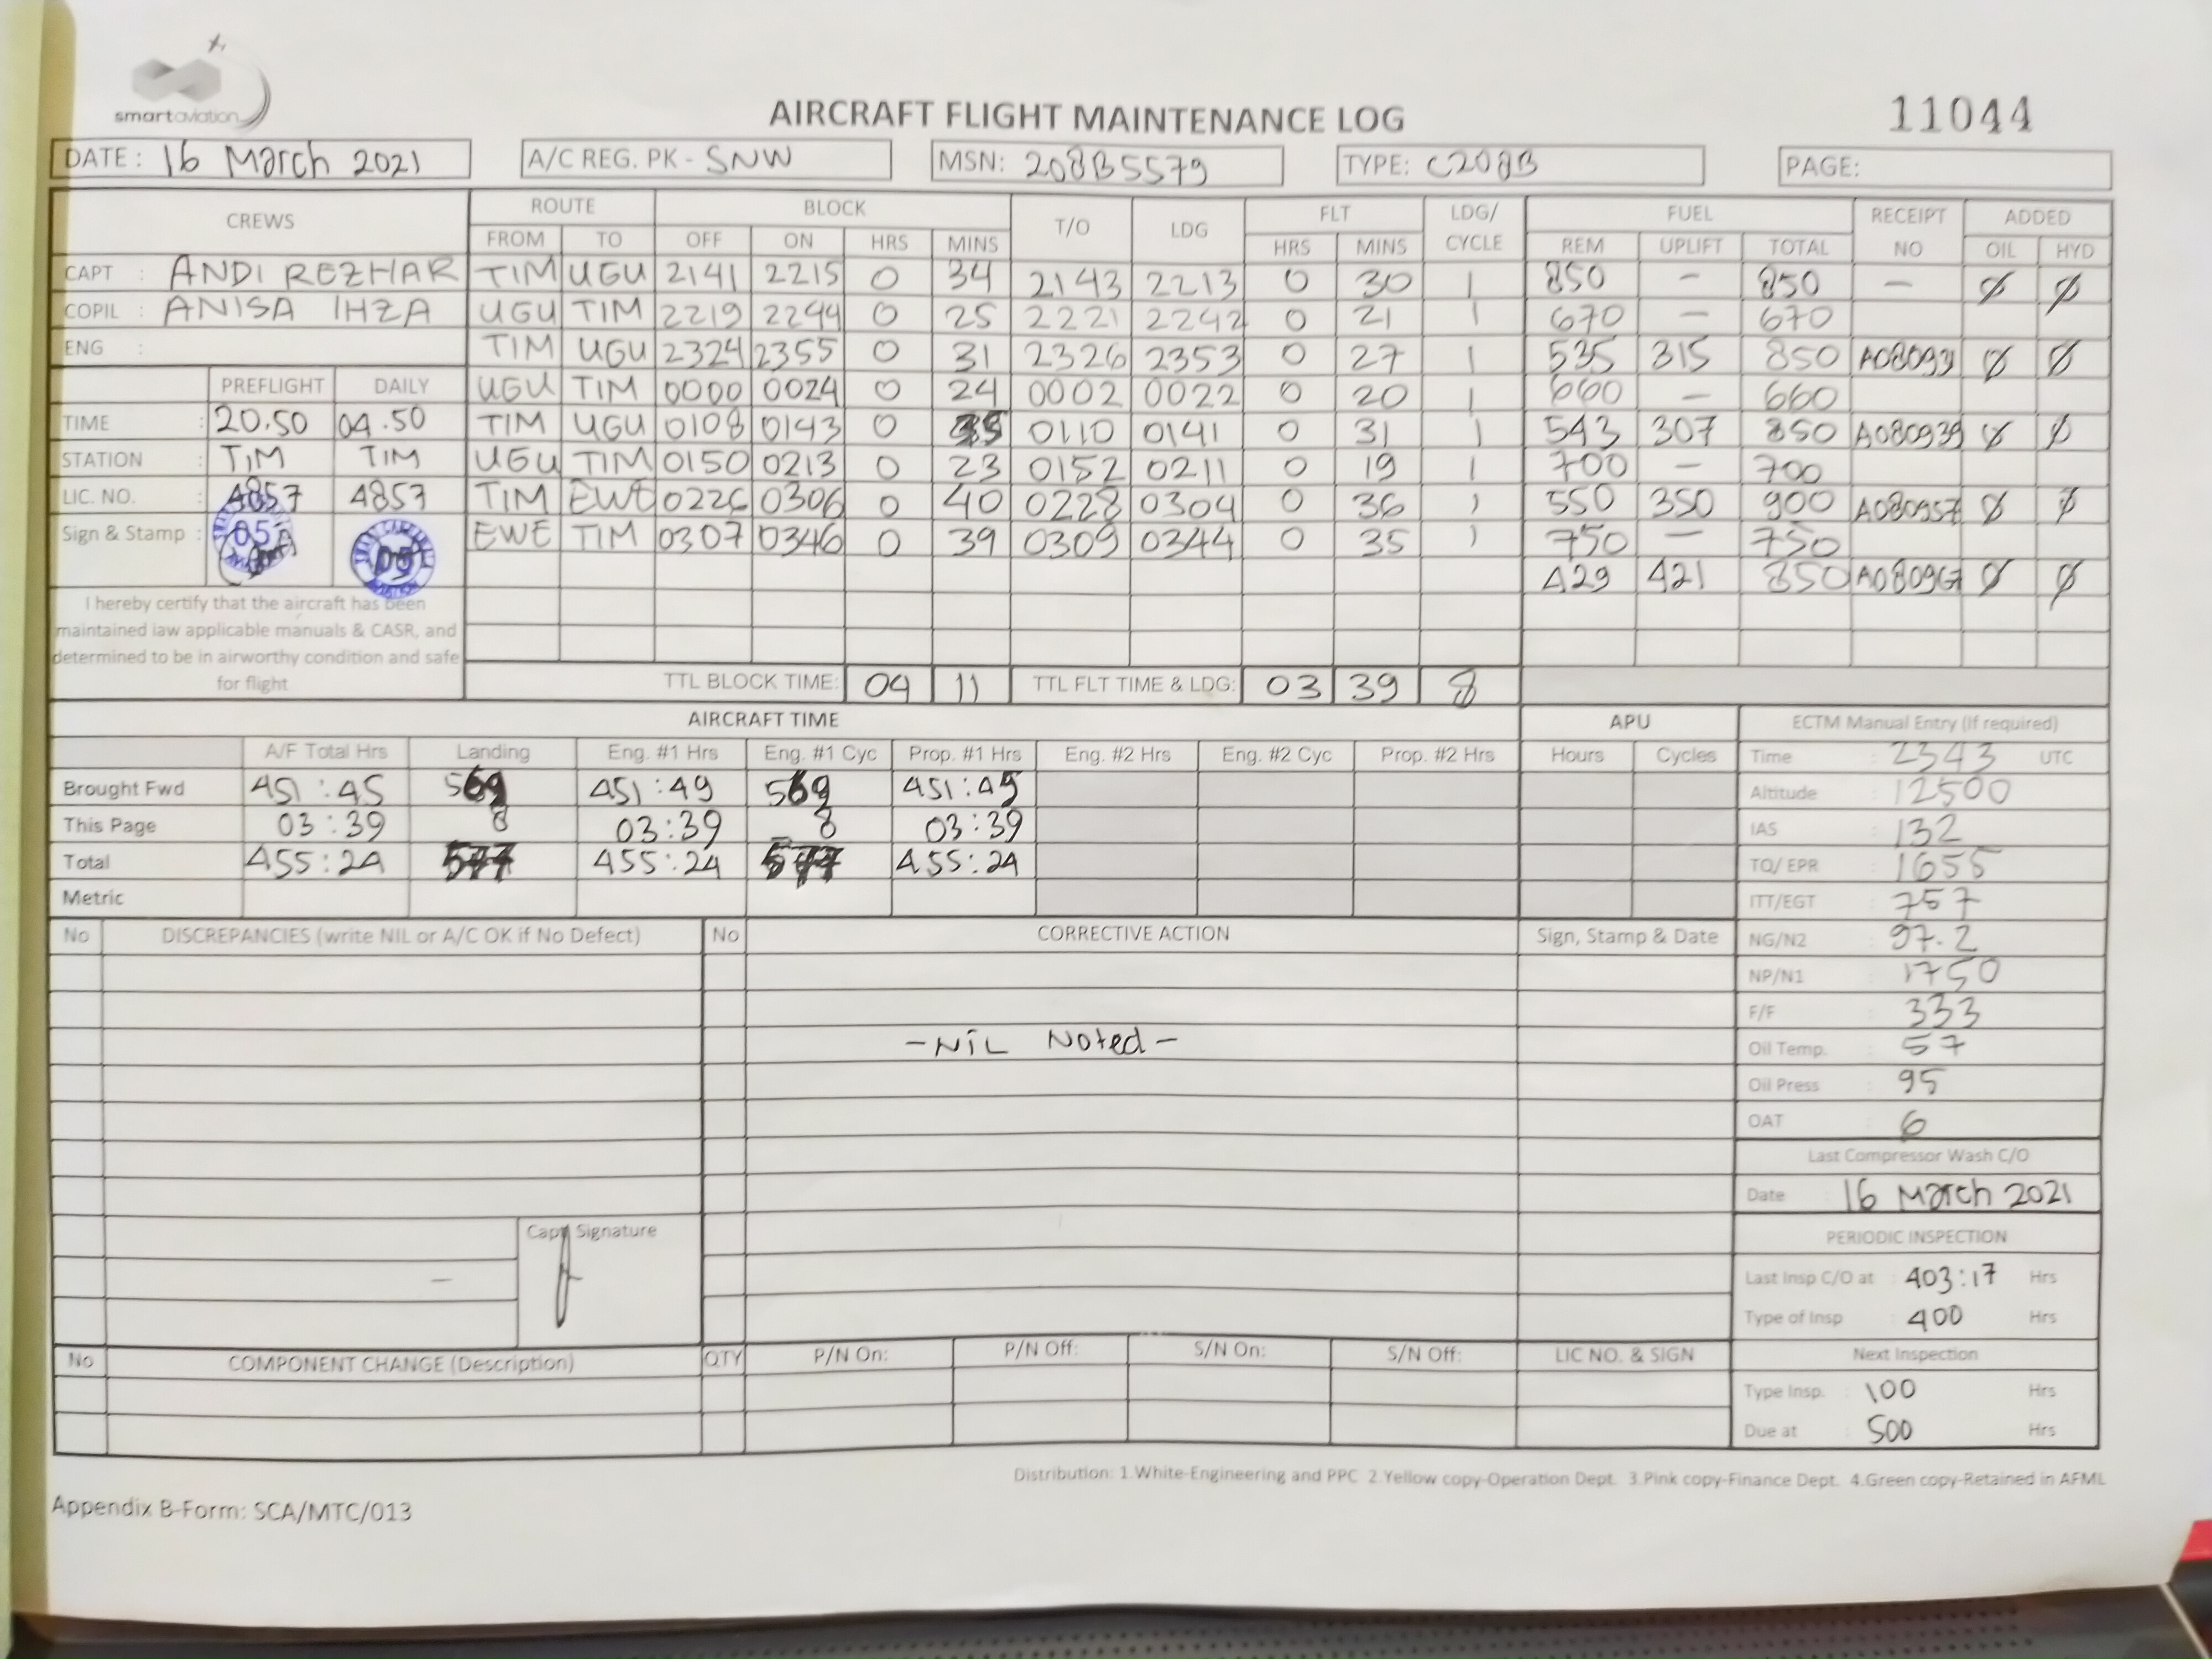 smart aviation
AIRCRAFT FLIGHT MAINTENANCE LOG
11044
DATE: 16 March 2021 A/C REG. PK - SNW MSN: 208B5579 TYPE: C208B PAGE:
CREWS ROUTE BLOCK T/O LDG FLT LDG/ CYCLE FUEL RECEIPT NO ADDED
FROM TO OFF ON HRS MINS HRS MINS REM UPLIFT TOTAL OIL HYD
CAPT : ANDI REZHAR TIM UGU 2141 2215 0 34 2143 2213 0 30 1 850 - 850 - Ø Ø
COPIL : ANISA IHZA UGU TIM 2219 2244 0 25 2221 2242 0 21 1 670 - 670
ENG : TIM UGU 2324 2355 0 31 2326 2353 0 27 1 535 315 850 Ø Ø
PREFLIGHT DAILY UGU TIM 0000 0024 0 24 0002 0022 0 20 1 660 - 660
TIME : 20.50 04.50 TIM UGU 0108 0143 0 35 0110 0141 0 31 1 543 307 850 A080939 Ø Ø
STATION : TIM TIM UGU TIM 0150 0213 0 23 0152 0211 0 19 1 700 - 700
LIC. NO. : 4857 4857 TIM EWE 0226 0306 0 40 0228 0304 0 36 1 550 350 900 A080957 Ø Ø
Sign & Stamp : EWE TIM 0307 0346 0 39 0309 0344 0 35 1 750 - 750
429 421 850 A080967 Ø Ø
I hereby certify that the aircraft has been
maintained iaw applicable manuals & CASR, and
determined to be in airworthy condition and safe
for flight
TTL BLOCK TIME: 04 11 TTL FLT TIME & LDG: 03 39 8
AIRCRAFT TIME APU ECTM Manual Entry (if required)
A/F Total Hrs Landing Eng. #1 Hrs Eng. #1 Cyc Prop. #1 Hrs Eng. #2 Hrs Eng. #2 Cyc Prop. #2 Hrs Hours Cycles Time : 2343 UTC
Brought Fwd 451:45 569 451:45 569 451:45 Altitude : 12500
This Page 03:39 8 03:39 8 03:39 IAS : 132
Total 455:24 577 455:24 577 455:24 TQ/ EPR : 1655
Metric ITT/EGT : 757
No DISCREPANCIES (write NIL or A/C OK if No Defect) No CORRECTIVE ACTION Sign, Stamp & Date NG/N2 : 97.2
NP/N1 : 1750
F/F : 333
-NIL Noted-
Oil Temp. : 57
Oil Press : 95
OAT : 6
Last Compressor Wash C/O
Date : 16 March 2021
Capt Signature
PERIODIC INSPECTION
-
Last Insp C/O at : 403:17 Hrs
Type of Insp : 400 Hrs
No COMPONENT CHANGE (Description) QTY P/N On: P/N Off: S/N On: S/N Off: LIC NO. & SIGN Next Inspection
Type Insp. : 100 Hrs
Due at : 500 Hrs
Distribution: 1.White-Engineering and PPC 2.Yellow copy-Operation Dept. 3.Pink copy-Finance Dept. 4.Green copy-Retained in AFML
Appendix B-Form: SCA/MTC/013